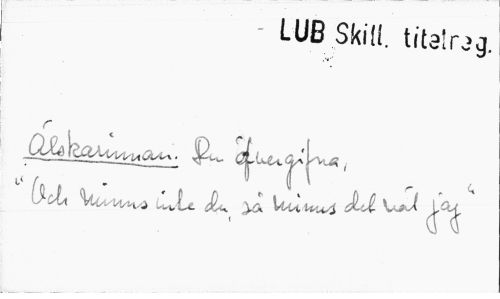 LUB Skill. titelreg.
Älskarinnan. Den öfvergifna,
"Och minns inte du, så minns det väl jag"